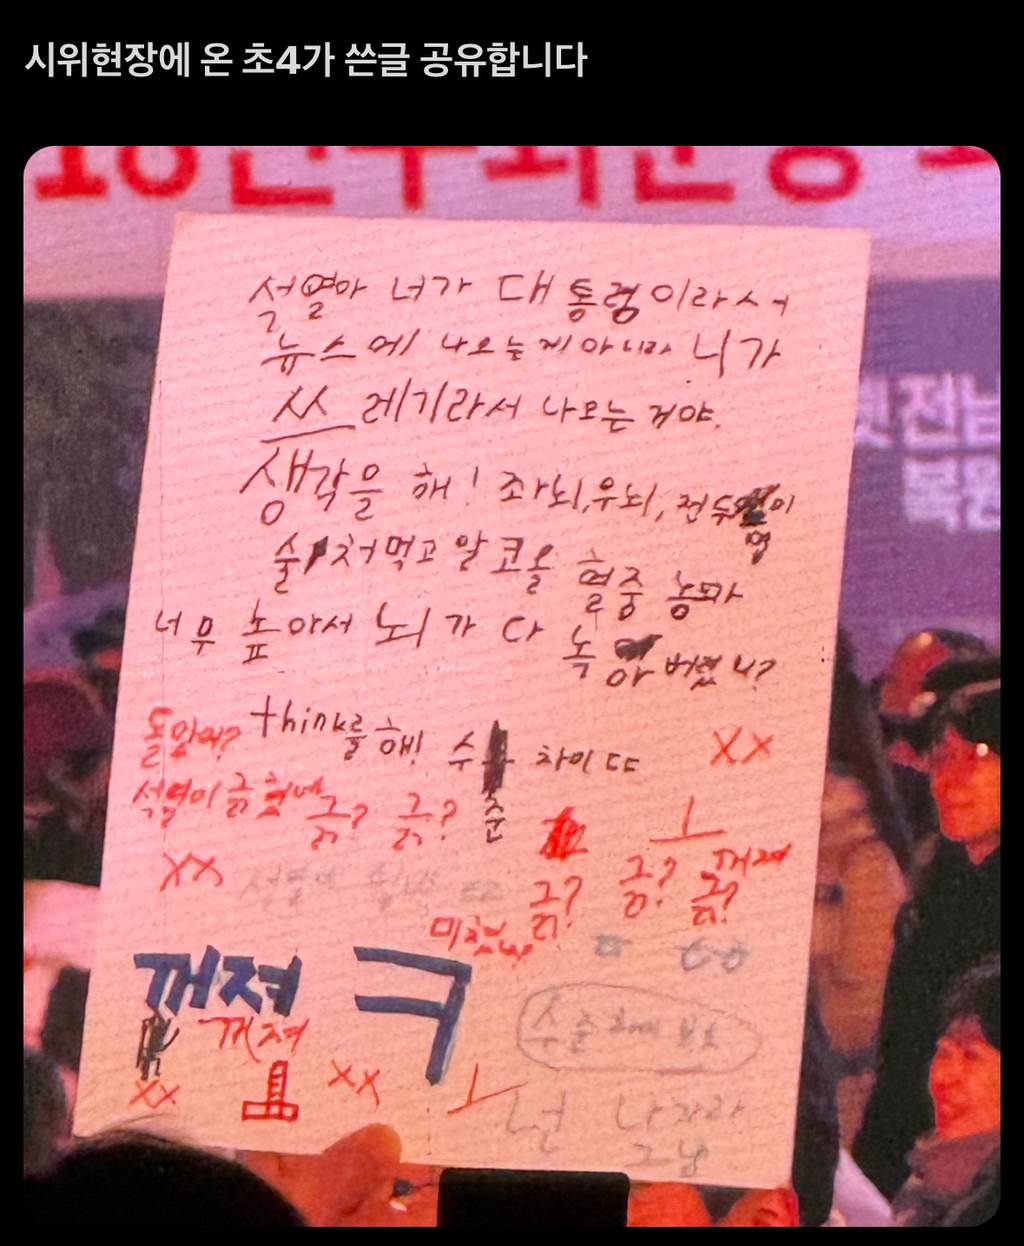 시위현장에 온 초4가 쓴글 공유합니다
석열아 너가 대통령이라서
뉴스에 나오는게 아니라 니가
쓰레기라서 나오는 거야.
생각을 해! 좌뇌, 우뇌, 전두엽이
술 처먹고 알코올 혈중 농도가
너무 높아서 뇌가 다 녹아버렸니?
think를 해! 수준 차이 ㄷㄷ
돌았어? XX
석열이 긁혔네 긁? 긁? ㅗ
XX 긁? 긁? 긁? 꺼져
미쳤냐
꺼져 ㅋ
꺼져
XX ㅗ XX ㅗ
넌 나가라
그냥